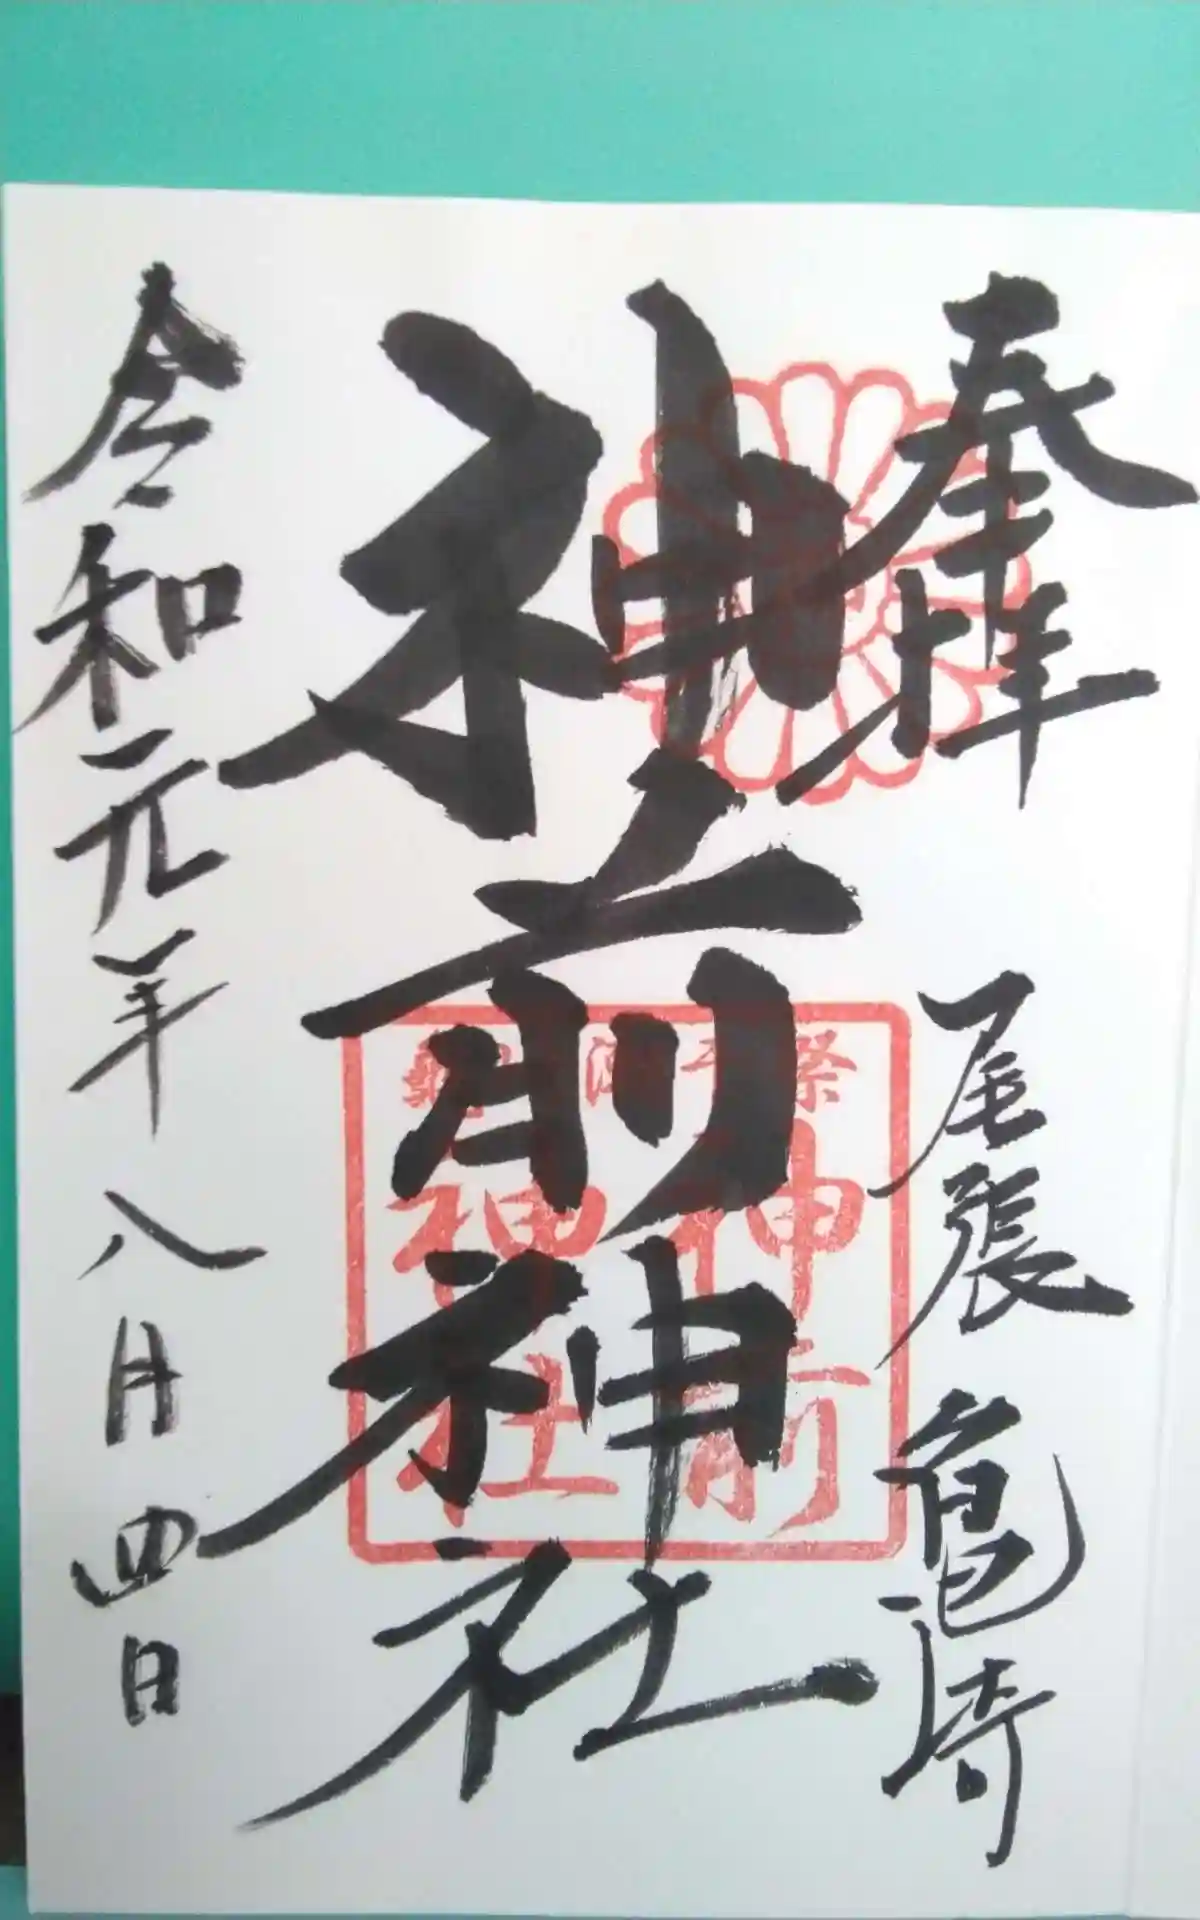 奉拝 尾張 亀崎
神前神社
令和元年八月四日
神前
神社